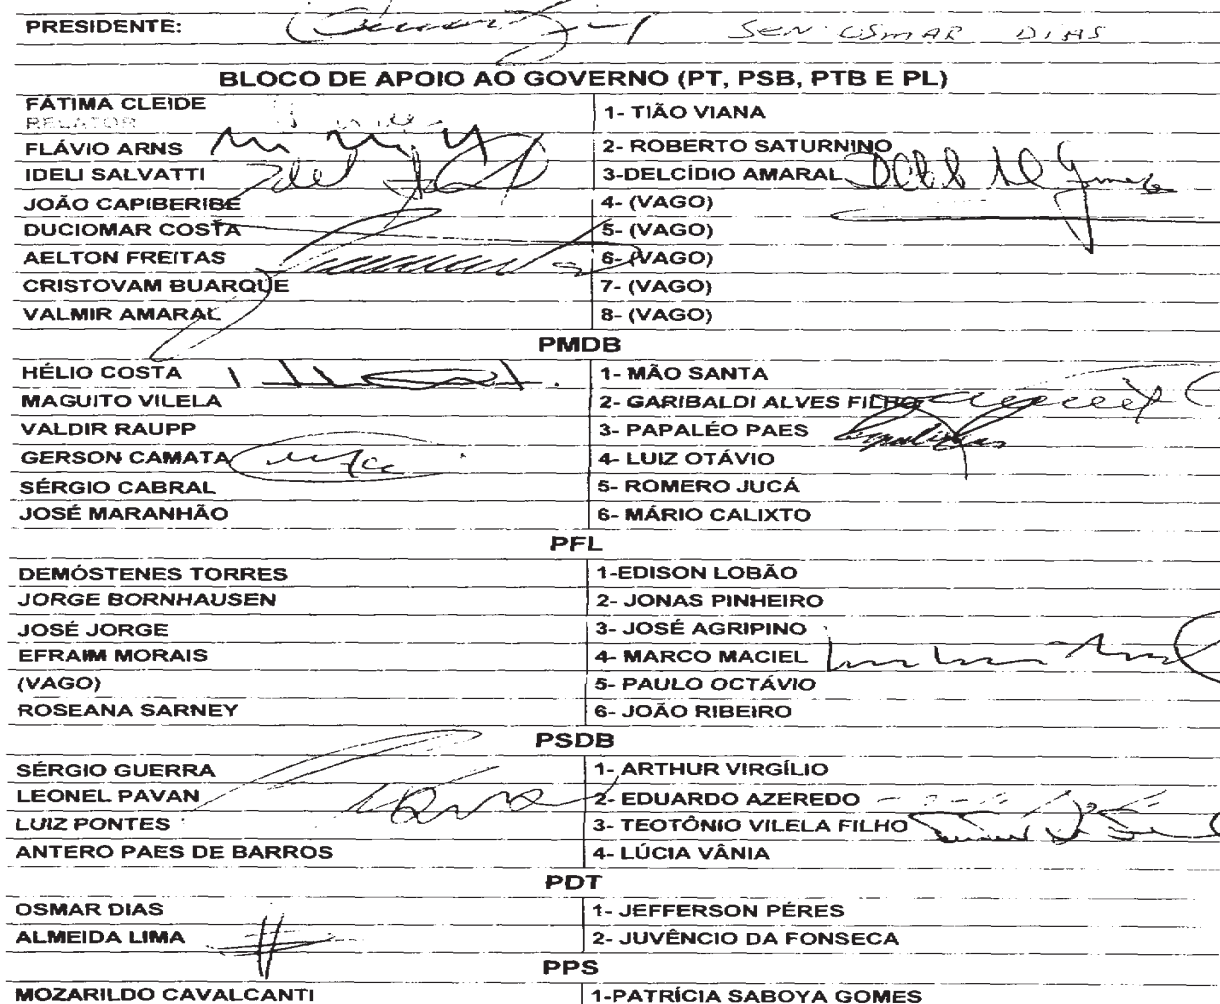 PRESIDENTE: SEN. OSMAR DIAS
BLOCO DE APOIO AO GOVERNO (PT, PSB, PTB E PL)
FÁTIMA CLEIDE 1- TIÃO VIANA
RELATOR
FLÁVIO ARNS 2- ROBERTO SATURNINO
IDELI SALVATTI 3-DELCÍDIO AMARAL
JOÃO CAPIBERIBE 4- (VAGO)
DUCIOMAR COSTA 5- (VAGO)
AELTON FREITAS 6- (VAGO)
CRISTOVAM BUARQUE 7- (VAGO)
VALMIR AMARAL 8- (VAGO)
PMDB
HÉLIO COSTA 1- MÃO SANTA
MAGUITO VILELA 2- GARIBALDI ALVES FILHO
VALDIR RAUPP 3- PAPALÉO PAES
GERSON CAMATA 4- LUIZ OTÁVIO
SÉRGIO CABRAL 5- ROMERO JUCÁ
JOSÉ MARANHÃO 6- MÁRIO CALIXTO
PFL
DEMÓSTENES TORRES 1-EDISON LOBÃO
JORGE BORNHAUSEN 2- JONAS PINHEIRO
JOSÉ JORGE 3- JOSÉ AGRIPINO
EFRAIM MORAIS 4- MARCO MACIEL
(VAGO) 5- PAULO OCTÁVIO
ROSEANA SARNEY 6- JOÃO RIBEIRO
PSDB
SÉRGIO GUERRA 1- ARTHUR VIRGÍLIO
LEONEL PAVAN 2- EDUARDO AZEREDO
LUIZ PONTES 3- TEOTÔNIO VILELA FILHO
ANTERO PAES DE BARROS 4- LÚCIA VÂNIA
PDT
OSMAR DIAS 1- JEFFERSON PÉRES
ALMEIDA LIMA 2- JUVÊNCIO DA FONSECA
PPS
MOZARILDO CAVALCANTI 1-PATRÍCIA SABOYA GOMES